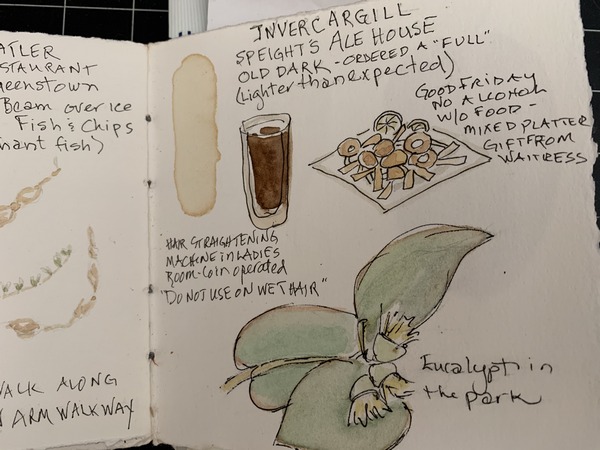 ATLER
STAURANT
eenstown
Beam over ice
Fish & Chips
hant fish)
WALK ALONG
ARM WALKWAY
INVERCARGILL
SPEIGHT'S ALE HOUSE
OLD DARK - ORDERED A "FULL"
(Lighter than expected)
GOOD FRIDAY
NO ALCOHOL
W/O FOOD -
MIXED PLATTER
GIFT FROM
WAITRESS
HAIR STRAIGHTENING
MACHINE in LADIES
ROOM - Coin operated
"DO NOT USE ON WET HAIR"
Eucalypt in
the park